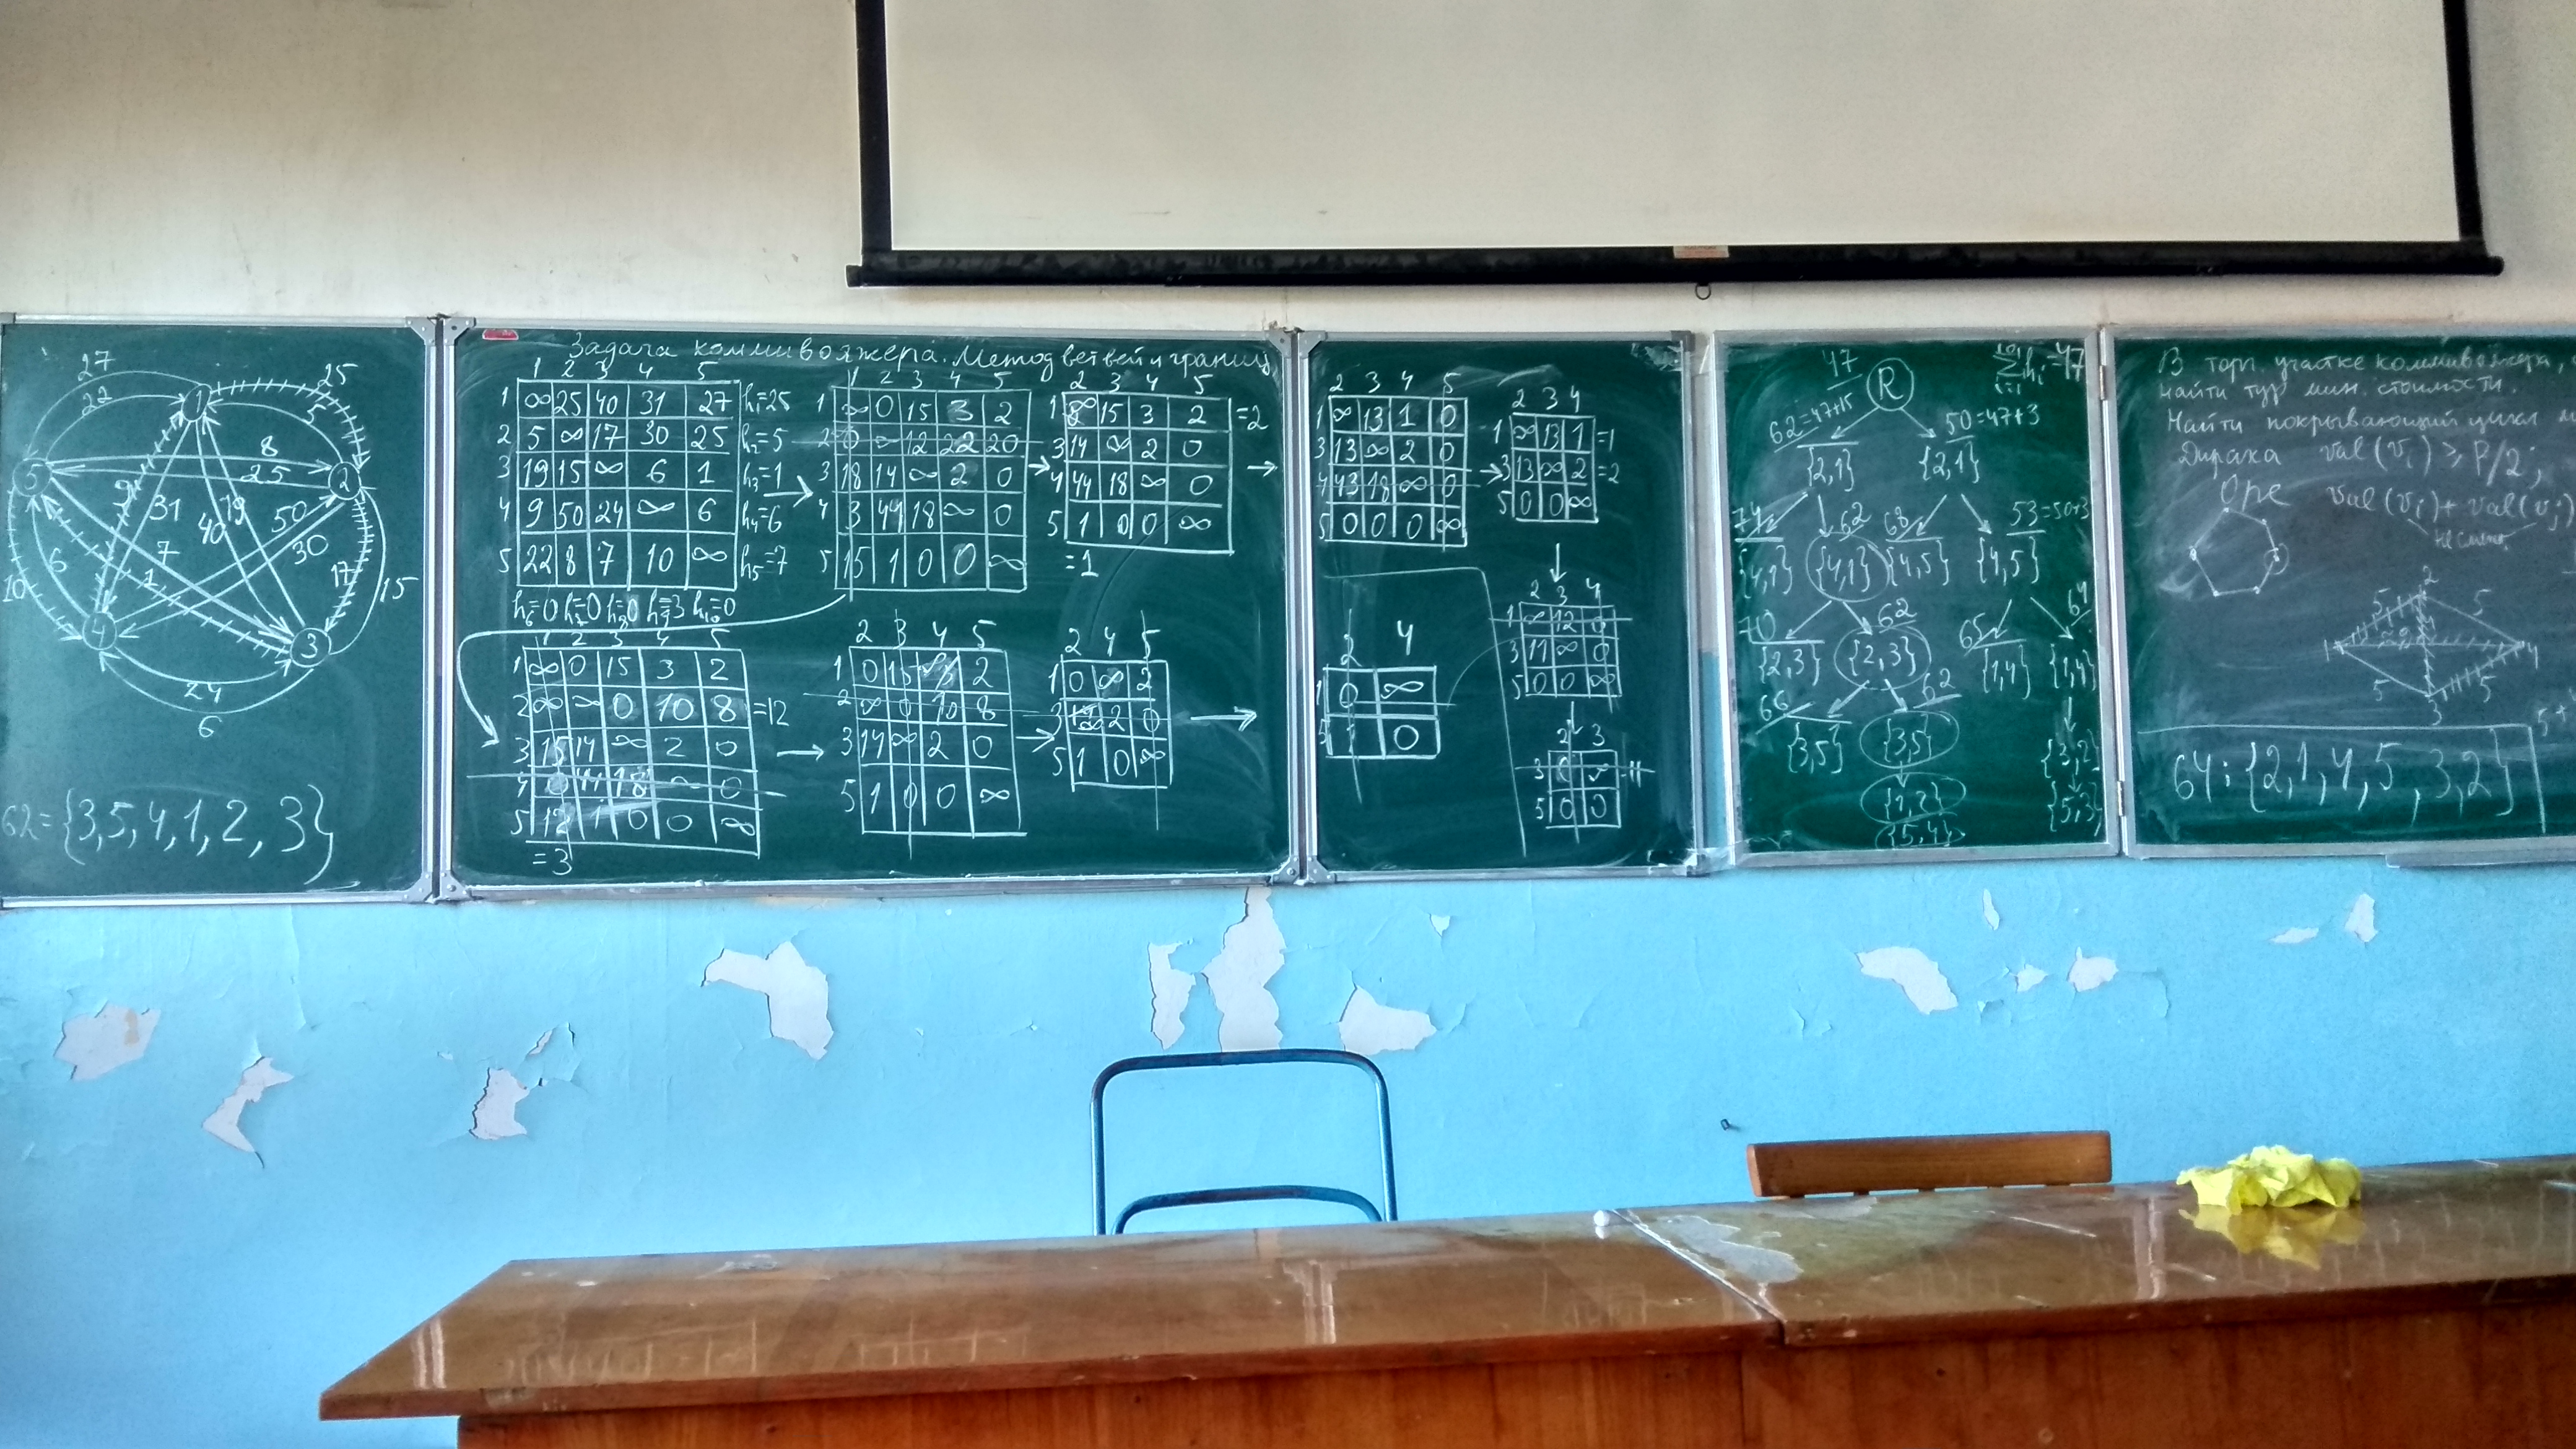 27
22
25
5
1
8
25
5
2
9
31
40
19
50
30
7
1
6
10
17
15
4
3
24
6
62={3,5,4,1,2,3}
Задача коммивояжера. Метод ветвей и границ
1 2 3 4 5
1 ∞ 25 40 31 27 h₁=25
2 5 ∞ 17 30 25 h₂=5
3 19 15 ∞ 6 1 h₃=1
4 9 50 24 ∞ 6 h₄=6
5 22 8 7 10 ∞ h₅=7
h₆=0 h₇=0 h₈=0 h₉=3 h₁₀=0
1 2 3 4 5
1 ∞ 0 15 3 2
2 0 ∞ 12 22 20
3 18 14 ∞ 2 0
4 3 44 18 ∞ 0
5 15 1 0 0 ∞
2 3 4 5
1 ∞ 15 3 2 =2
3 14 ∞ 2 0
4 44 18 ∞ 0
5 1 0 0 ∞
=1
1 2 3 4 5
1 ∞ 0 15 3 2
2 ∞ ∞ 0 10 8 =12
3 15 14 ∞ 2 0
4 0 44 18 ∞ 0
5 12 1 0 0 ∞
=3
2 3 4 5
1 0 15 ∞ 2
2 ∞ 0 10 8
3 14 ∞ 2 0
5 1 0 0 ∞
2 4 5
1 0 ∞ 2
3 2 0
5 1 0 ∞
2 3 4 5
1 ∞ 13 1 0
3 13 ∞ 2 0
4 43 18 ∞ 0
5 0 0 0 ∞
2 3 4
1 ∞ 13 1 =1
3 13 ∞ 2 =2
5 0 0 ∞
2 3 4
1 ∞ 12 0
3 11 ∞ 0
5 0 0 ∞
2 4
1 0 ∞
5 1 0
2 3
3 0 ∞
5 0 0
47
R
62=47+15
50=47+3
{2,1} {2,1}
74 62 68 53=50+3
{4,1} {4,1} {4,5} {4,5}
70 62 65 64
{2,3} {2,3} {1,4} {1,4}
66 62
{3,5} {3,5} {3,2}
{1,2} {5,3}
{5,4}
В торг. участке коммивояжера,
найти тур мин. стоимости.
Найти покрывающий цикл
Дирака val(vᵢ) ≥ P/2;
Оре val(vᵢ)+val(vⱼ)
2
5 5
1 4
5 5
3
64: {2,1,4,5,3,2}